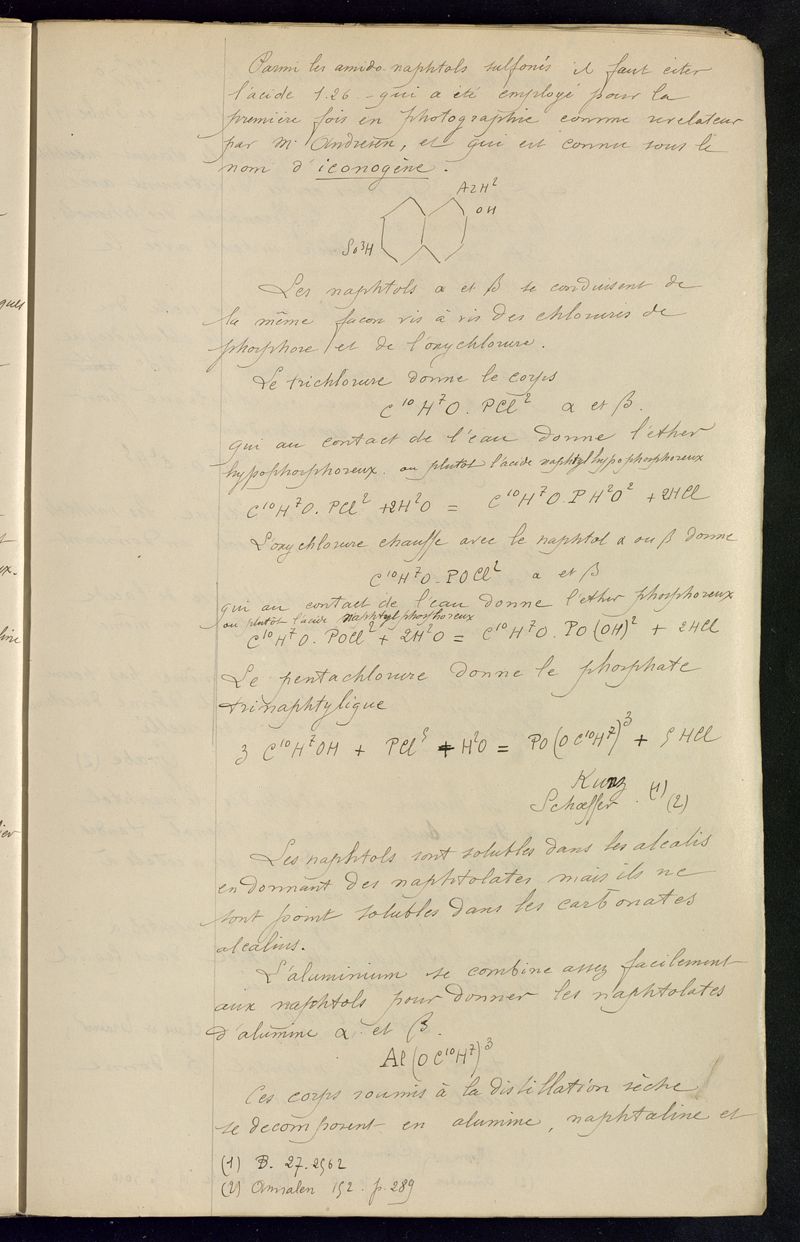 Parmi les amido-naphtols sulfonés il faut citer
l'acide 1.2.6 - qui a été employé pour la
première fois en photographie comme revelateur
par M. Andresen, et qui est connu sous le
nom d'iconogène.
AzH²
OH
So³H
Les naphtols α et β se conduisent de
la même facon vis à vis des chlorures de
phosphore et de l'oxychlorure.
Le trichlorure donne le corps
C¹⁰H⁷O. PCl² α et β.
qui au contact de l'eau donne l'éther
hypophosphoreux. ou plutôt l'acide naphtylhypophosphoreux
C¹⁰H⁷O. PCl² + 2H²O = C¹⁰H⁷O. PH²O² + 2HCl
L'oxychlorure chauffe avec le naphtol α ou β donne
C¹⁰H⁷O - POCl² α et β
qui au contact de l'eau donne l'ether phosphoreux
ou plutôt l'acide naphtylphosphoreux
C¹⁰H⁷O. POCl² + 2H²O = C¹⁰H⁷O. PO(OH)² + 2HCl
Le pentachlorure donne le phosphate
trinaphtylique
3 C¹⁰H⁷OH + PCl⁵ + H²O = PO(OC¹⁰H⁷)³ + 5HCl
Kunz
Schæffer. (1) (2)
Les naphtols sont solubles dans les alcalis
en donnant des naphtolates mais ils ne
sont point solubles dans les carbonates
alcalins.
L'aluminium se combine assez facilement
aux naphtols pour donner les naphtolates
d'alumine α et β.
Al(OC¹⁰H⁷)³
Ces corps soumis à la distillation sèche
se decomposent en alumine, naphtaline et
(1) B. 27. 2962
(2) Annalen 152. p. 289